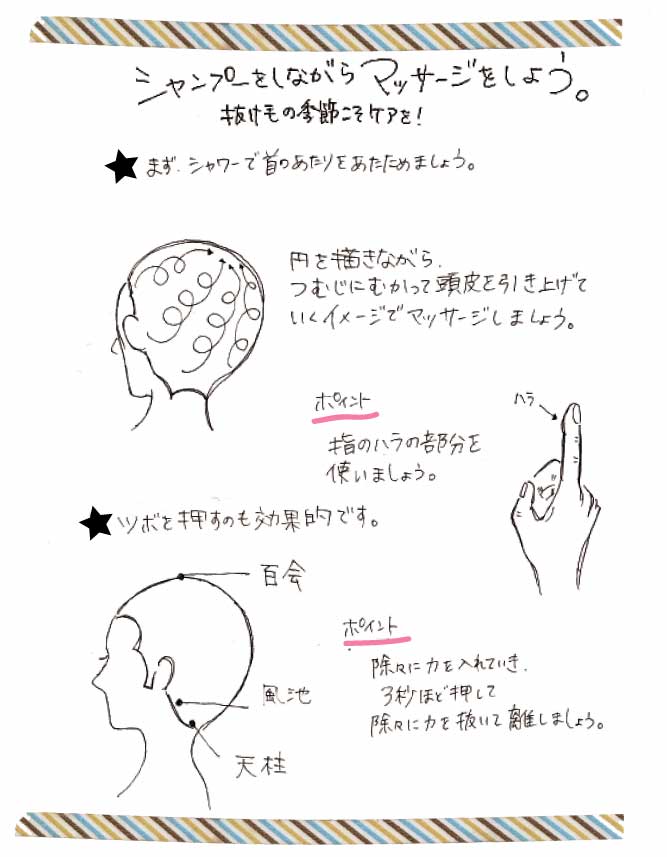 シャンプーをしながらマッサージをしよう。
抜け毛の季節こそケアを！
★まず、シャワーで首のあたりをあたためましょう。
円を描きながら、
つむじにむかって頭皮を引き上げて
いくイメージでマッサージしましょう。
ポイント
ハラ
指のハラの部分を
使いましょう。
★ツボを押すのも効果的です。
百会
風池
天柱
ポイント
除々に力を入れていき、
3秒ほど押して
除々に力を抜いて離しましょう。